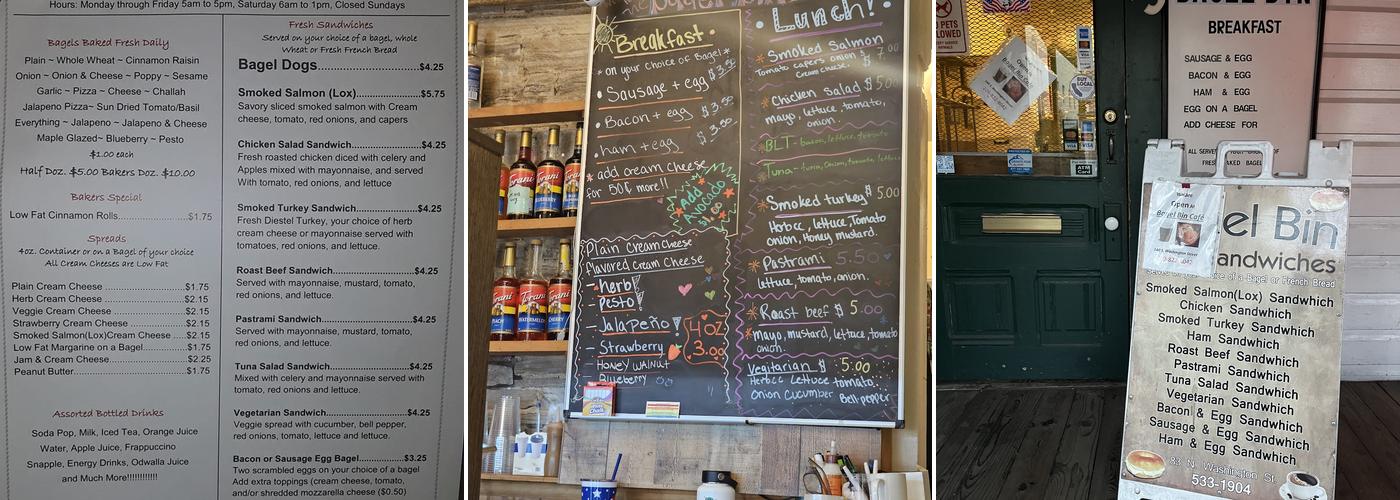 Hours: Monday through Friday 5am to 5pm, Saturday 6am to 1pm, Closed Sundays
Bagels Baked Fresh Daily
Plain ~ Whole Wheat ~ Cinnamon Raisin
Onion ~ Onion & Cheese ~ Poppy ~ Sesame
Garlic ~ Pizza ~ Cheese ~ Challah
Jalapeno Pizza~ Sun Dried Tomato/Basil
Everything ~ Jalapeno ~ Jalapeno & Cheese
Maple Glazed~ Blueberry ~ Pesto
$1.00 each
Half Doz. $5.00 Bakers Doz. $10.00
Bakers Special
Low Fat Cinnamon Rolls.................$1.75
Spreads
4oz. Container or on a Bagel of your choice
All Cream Cheeses are Low Fat
Plain Cream Cheese .....................$1.75
Herb Cream Cheese .....................$2.15
Veggie Cream Cheese ..................$2.15
Strawberry Cream Cheese ............$2.15
Smoked Salmon(Lox)Cream Cheese .....$2.15
Low Fat Margarine on a Bagel..........$1.75
Jam & Cream Cheese....................$2.25
Peanut Butter................................$1.75
Assorted Bottled Drinks
Soda Pop, Milk, Iced Tea, Orange Juice
Water, Apple Juice, Frappuccino
Snapple, Energy Drinks, Odwalla Juice
and Much More!!!!!!!!!!!!!
Fresh Sandwiches
Served on your choice of a bagel, whole
Wheat or Fresh French Bread
Bagel Dogs................................$4.25
Smoked Salmon (Lox)........................$5.75
Savory sliced smoked salmon with Cream
cheese, tomato, red onions, and capers
Chicken Salad Sandwich....................$4.25
Fresh roasted chicken diced with celery and
Apples mixed with mayonnaise, and served
With tomato, red onions, and lettuce
Smoked Turkey Sandwich...................$4.25
Fresh Diestel Turkey, your choice of herb
cream cheese or mayonnaise served with
tomatoes, red onions, and lettuce.
Roast Beef Sandwich.........................$4.25
Served with mayonnaise, mustard, tomato,
red onions, and lettuce.
Pastrami Sandwich............................$4.25
Served with mayonnaise, mustard, tomato,
red onions, and lettuce.
Tuna Salad Sandwich.........................$4.25
Mixed with celery and mayonnaise served with
tomato, red onions and lettuce.
Vegetarian Sandwich.........................$4.25
Veggie spread with cucumber, bell pepper,
red onions, tomato, lettuce and lettuce.
Bacon or Sausage Egg Bagel..............$3.25
Two scrambled eggs on your choice of a bagel
Add extra toppings (cream cheese, tomato,
and/or shredded mozzarella cheese ($0.50)
Breakfast
* on your choice of Bagel *
• Sausage + egg $3.50
• Bacon + egg $3.50
• ham + egg $3.50
* add cream cheese
for 50¢ more!!
Add
Avocado
$1.00
Plain Cream Cheese
flavored Cream Cheese
- herb
Pesto
- Jalapeño
- Strawberry
- Honey walnut
- Blueberry
4oz
3.00
• Lunch! •
* Smoked Salmon $7.00
Tomato capers onion
Cream cheese.
* Chicken Salad $5.00
mayo, lettuce, tomato,
onion.
* BLT - bacon, lettuce, tomato
* Tuna - tuna, onion, tomato, lettuce
* Smoked turkey $5.00
Herb cc, lettuce, Tomato
onion, Honey mustard.
* Pastrami 5.50
lettuce, tomato, onion.
* Roast beef $5.00
* mayo, mustard, lettuce, tomato
onion.
Vegitarian $5.00
Herbcc Lettuce tomato,
Onion Cucumber Bell pepper
Torani
Torani
Torani
Torani
PEACH
WATERMELON
CHERRY
PETS
ALLOWED
BUY
LOCAL
VISA
ATM
Card
BAGEL BIN
BREAKFAST
SAUSAGE & EGG
BACON & EGG
HAM & EGG
EGG ON A BAGEL
ADD CHEESE FOR
Open At
Bagel Bin Café
el Bin
andwiches
of a Bagel or French Bread
Smoked Salmon(Lox) Sandwhich
Chicken Sandwhich
Smoked Turkey Sandwhich
Ham Sandwhich
Roast Beef Sandwhich
Pastrami Sandwhich
Tuna Salad Sandwhich
Vegetarian Sandwhich
Bacon & Egg Sandwhich
Sausage & Egg Sandwhich
Ham & Egg Sandwhich
83 N. Washington St.
533-1904